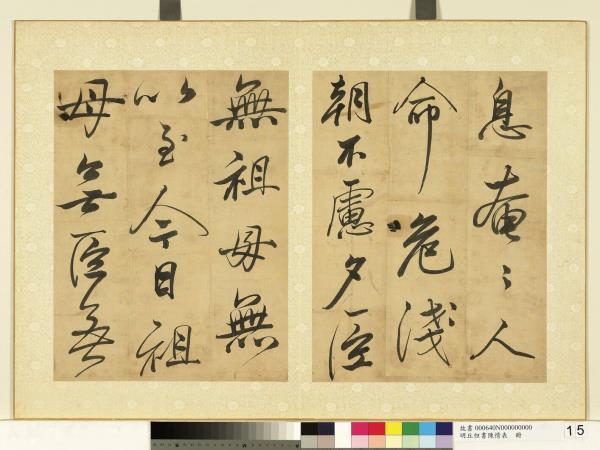 息奄〻人
命危淺
朝不慮夕臣
無祖母無
以至今日祖
母無臣無
故書 000640N000000000
明丘但書陳情表 冊
15